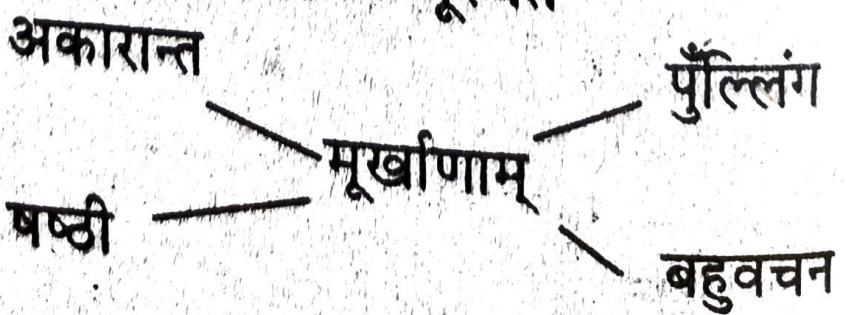 अकारान्त
पुँल्लिंग
मूर्खाणाम्
षष्ठी
बहुवचन